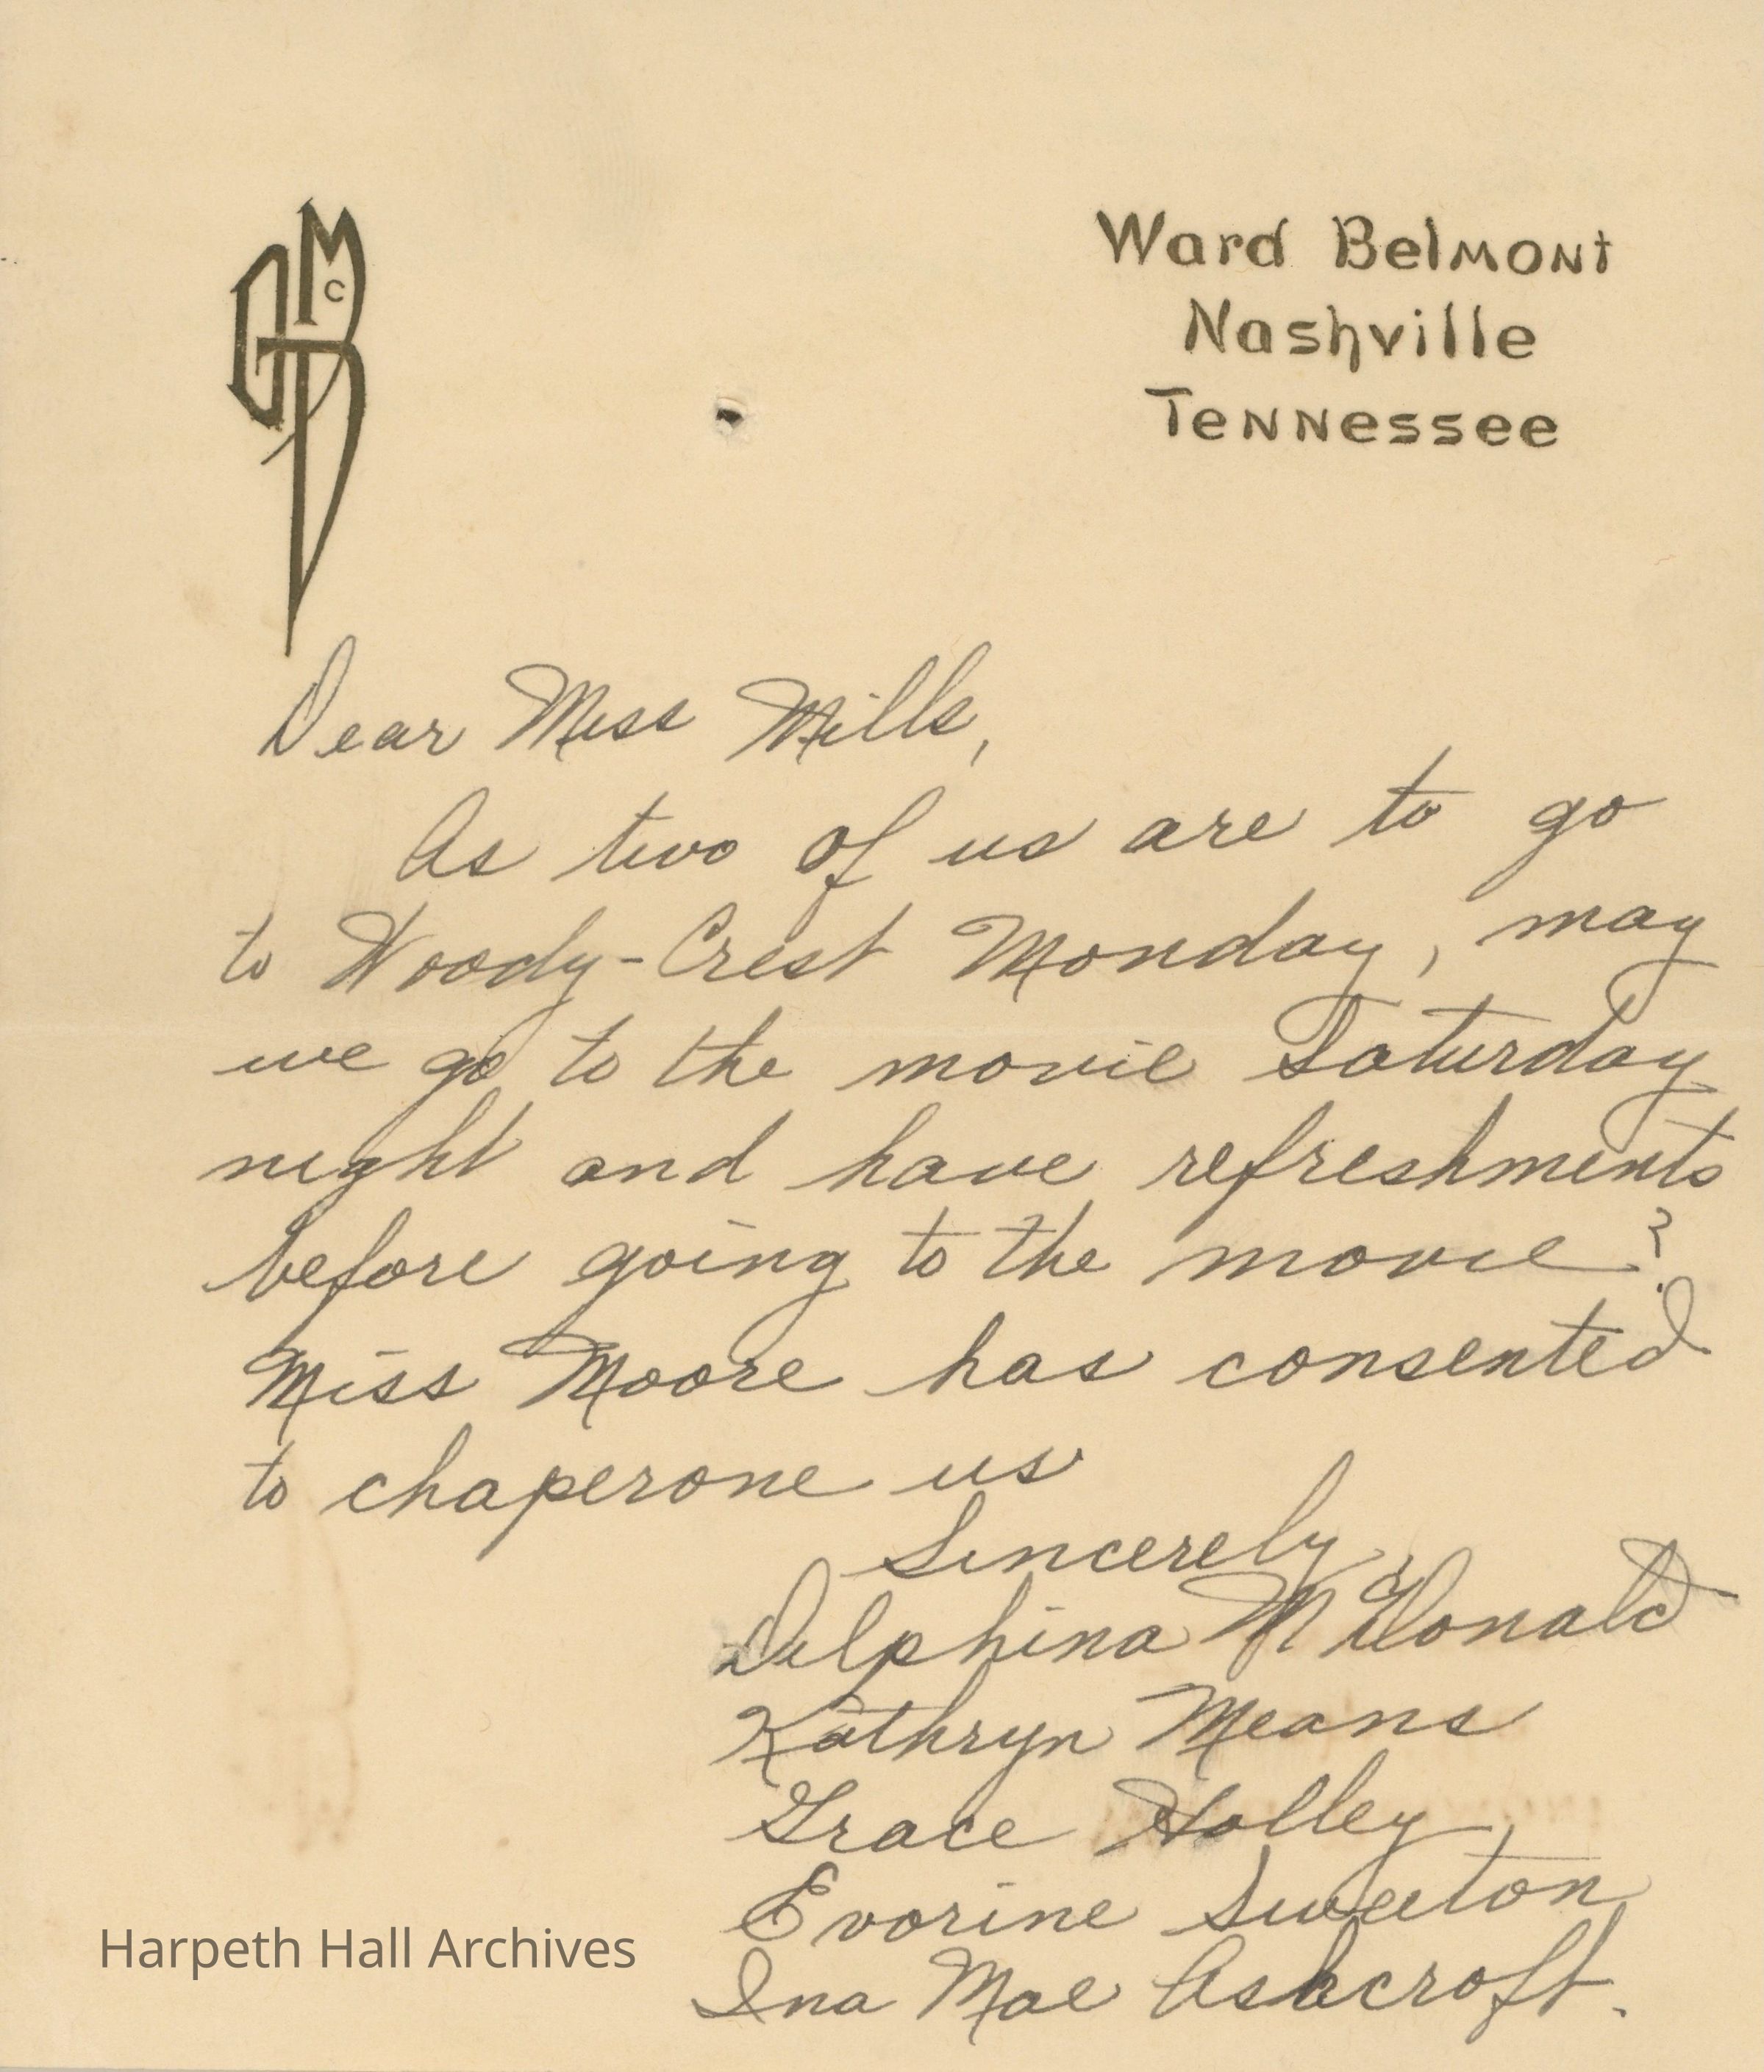 GMcB
Ward Belmont
Nashville
Tennessee
Dear Miss Mills,
As two of us are to go
to Woody-Crest Monday, may
we go to the movie Saturday
night and have refreshments
before going to the movie?
Miss Moore has consented
to chaperone us
Sincerely,
Delphina McDonald
Kathryn Means
Grace Holley
Evorine Sweeton
Ina Mae Ashcroft.
Harpeth Hall Archives